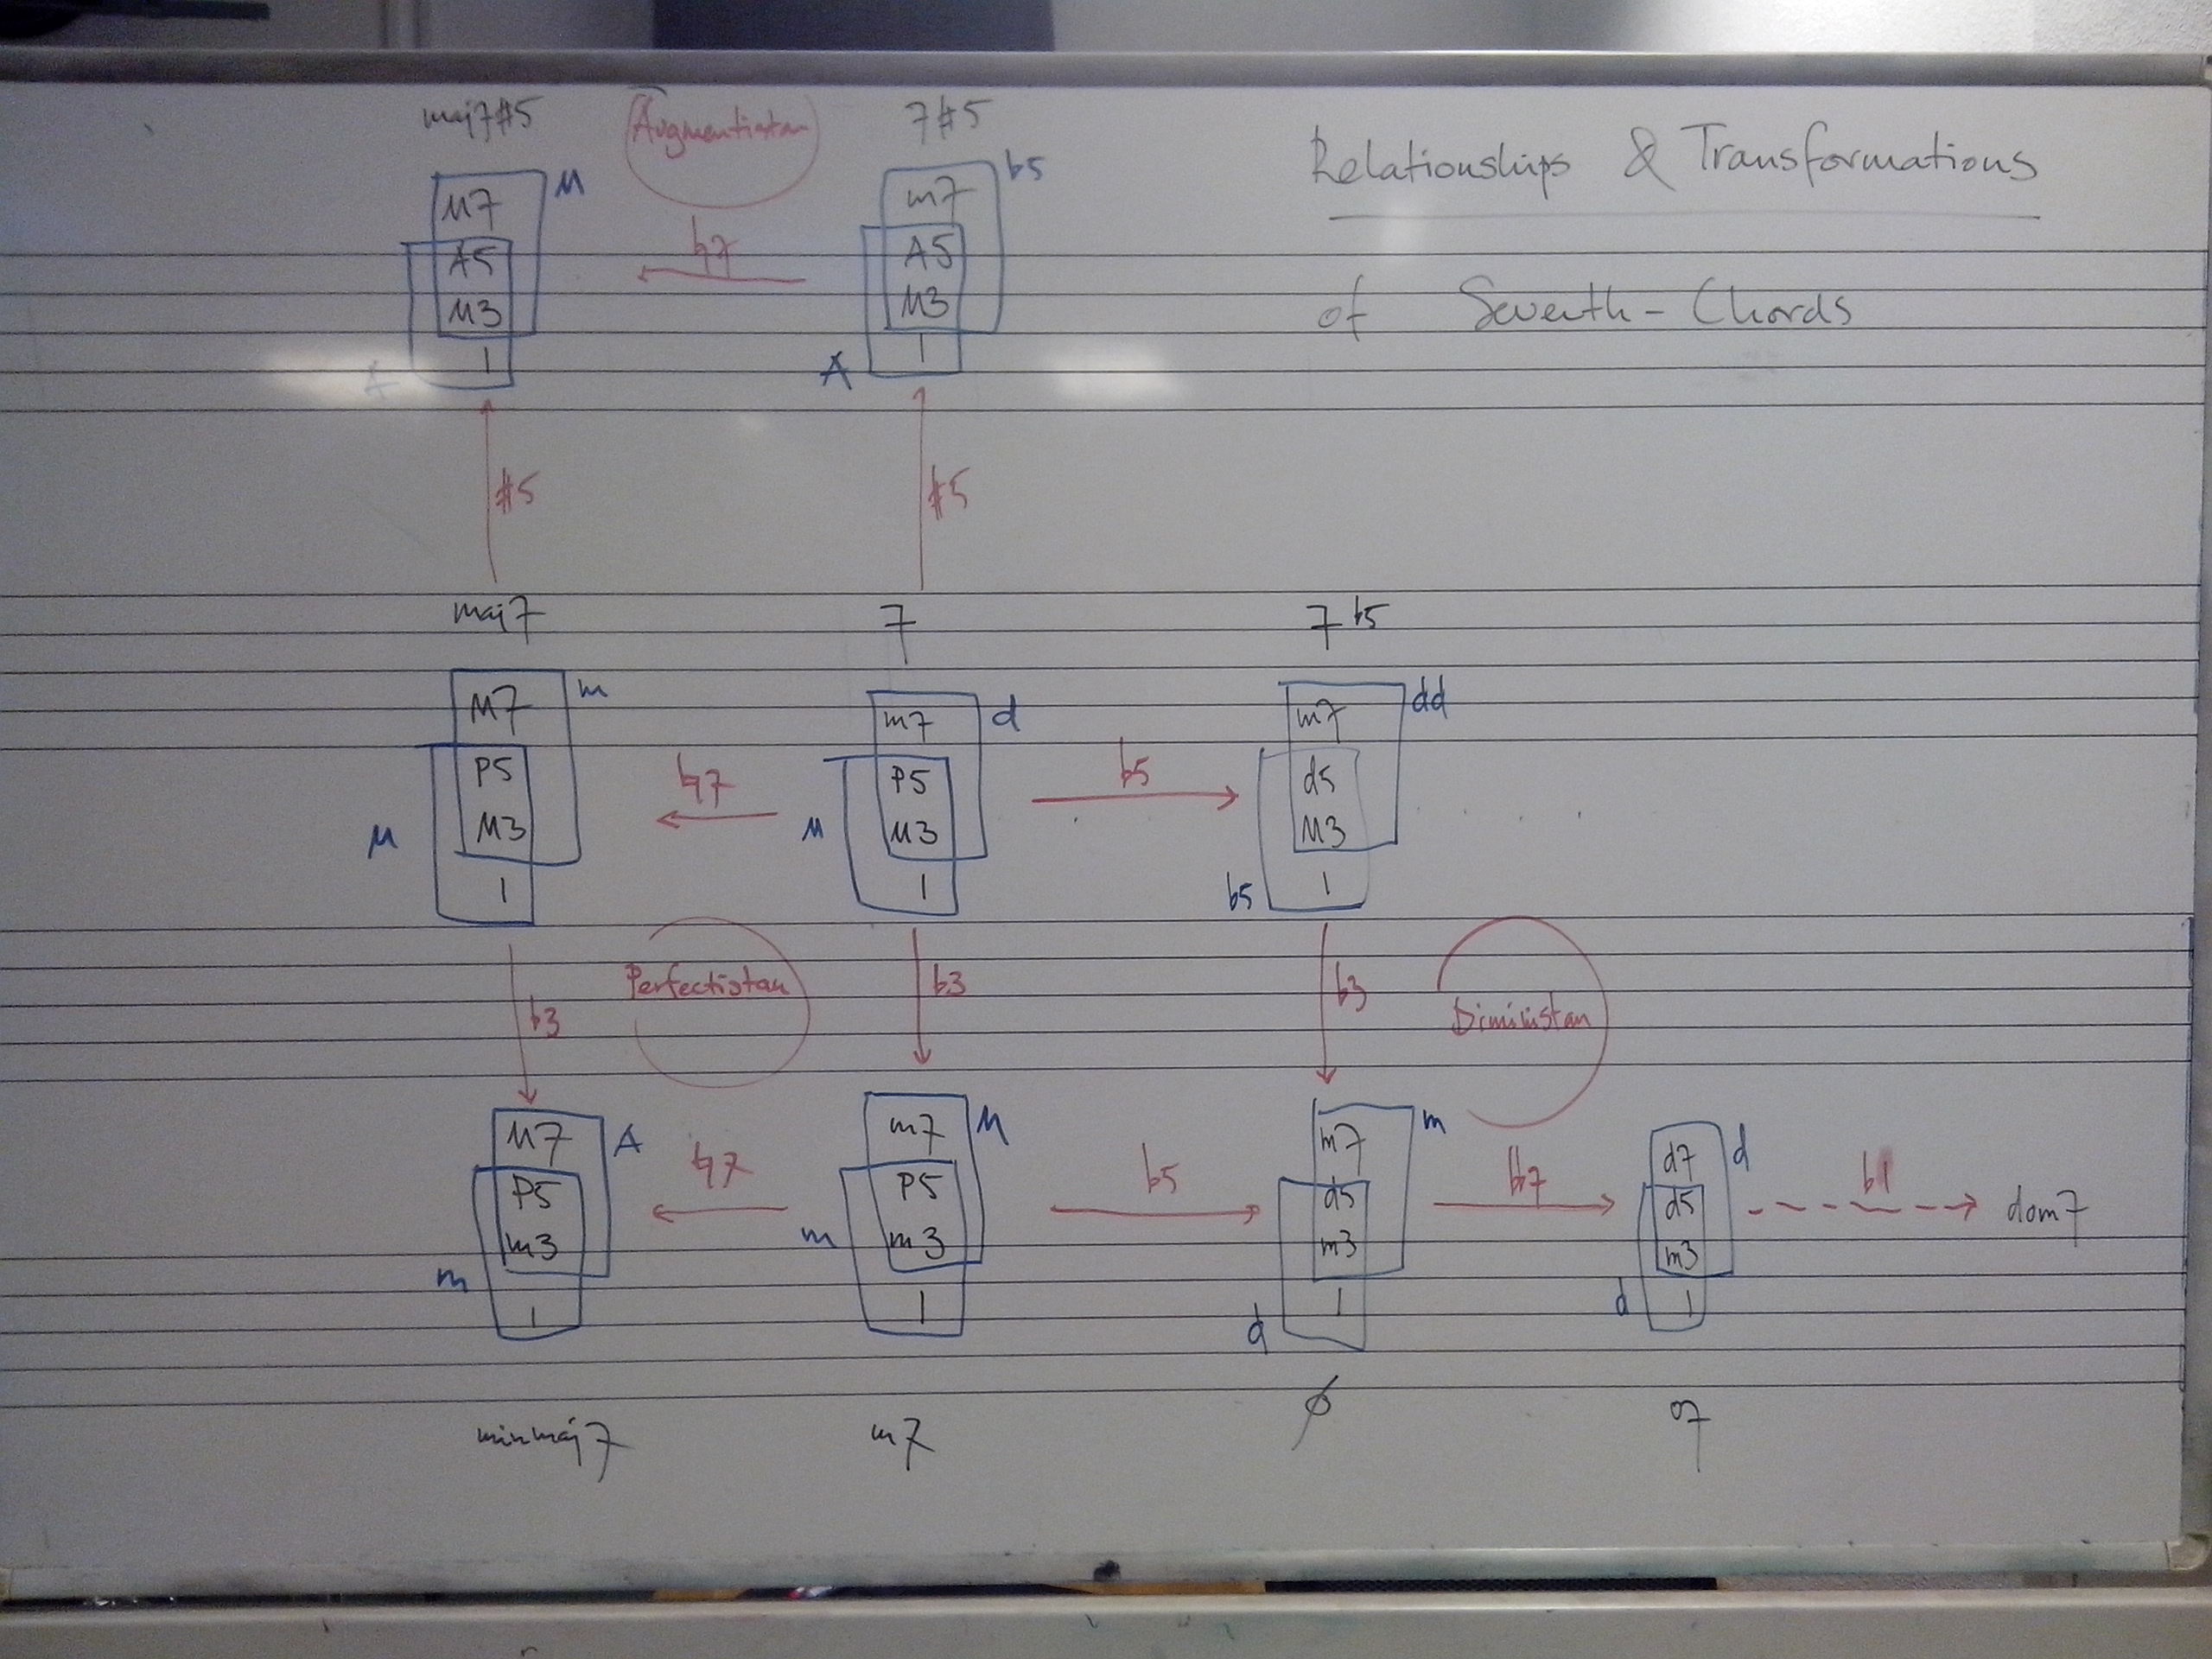 maj7#5 Augmentistan 7#5
Relationships & Transformations
of Seventh-Chords
M7 M
A5
M3
1
A
♮7
m7 b5
A5
M3
1
A
#5 #5
maj7 7 7b5
M7 m
P5
M3
1
M
♮7
m7 d
P5
M3
1
M
b5
m7 dd
d5
M3
1
b5
b3 Perfectistan b3 b3 Diministan
M7 A
P5
m3
1
m
♮7
m7 M
P5
m3
1
m
b5
m7 m
d5
m3
1
d
bb7
d7 d
d5
m3
1
d
b1 dom7
minmaj7 m7 ø o7